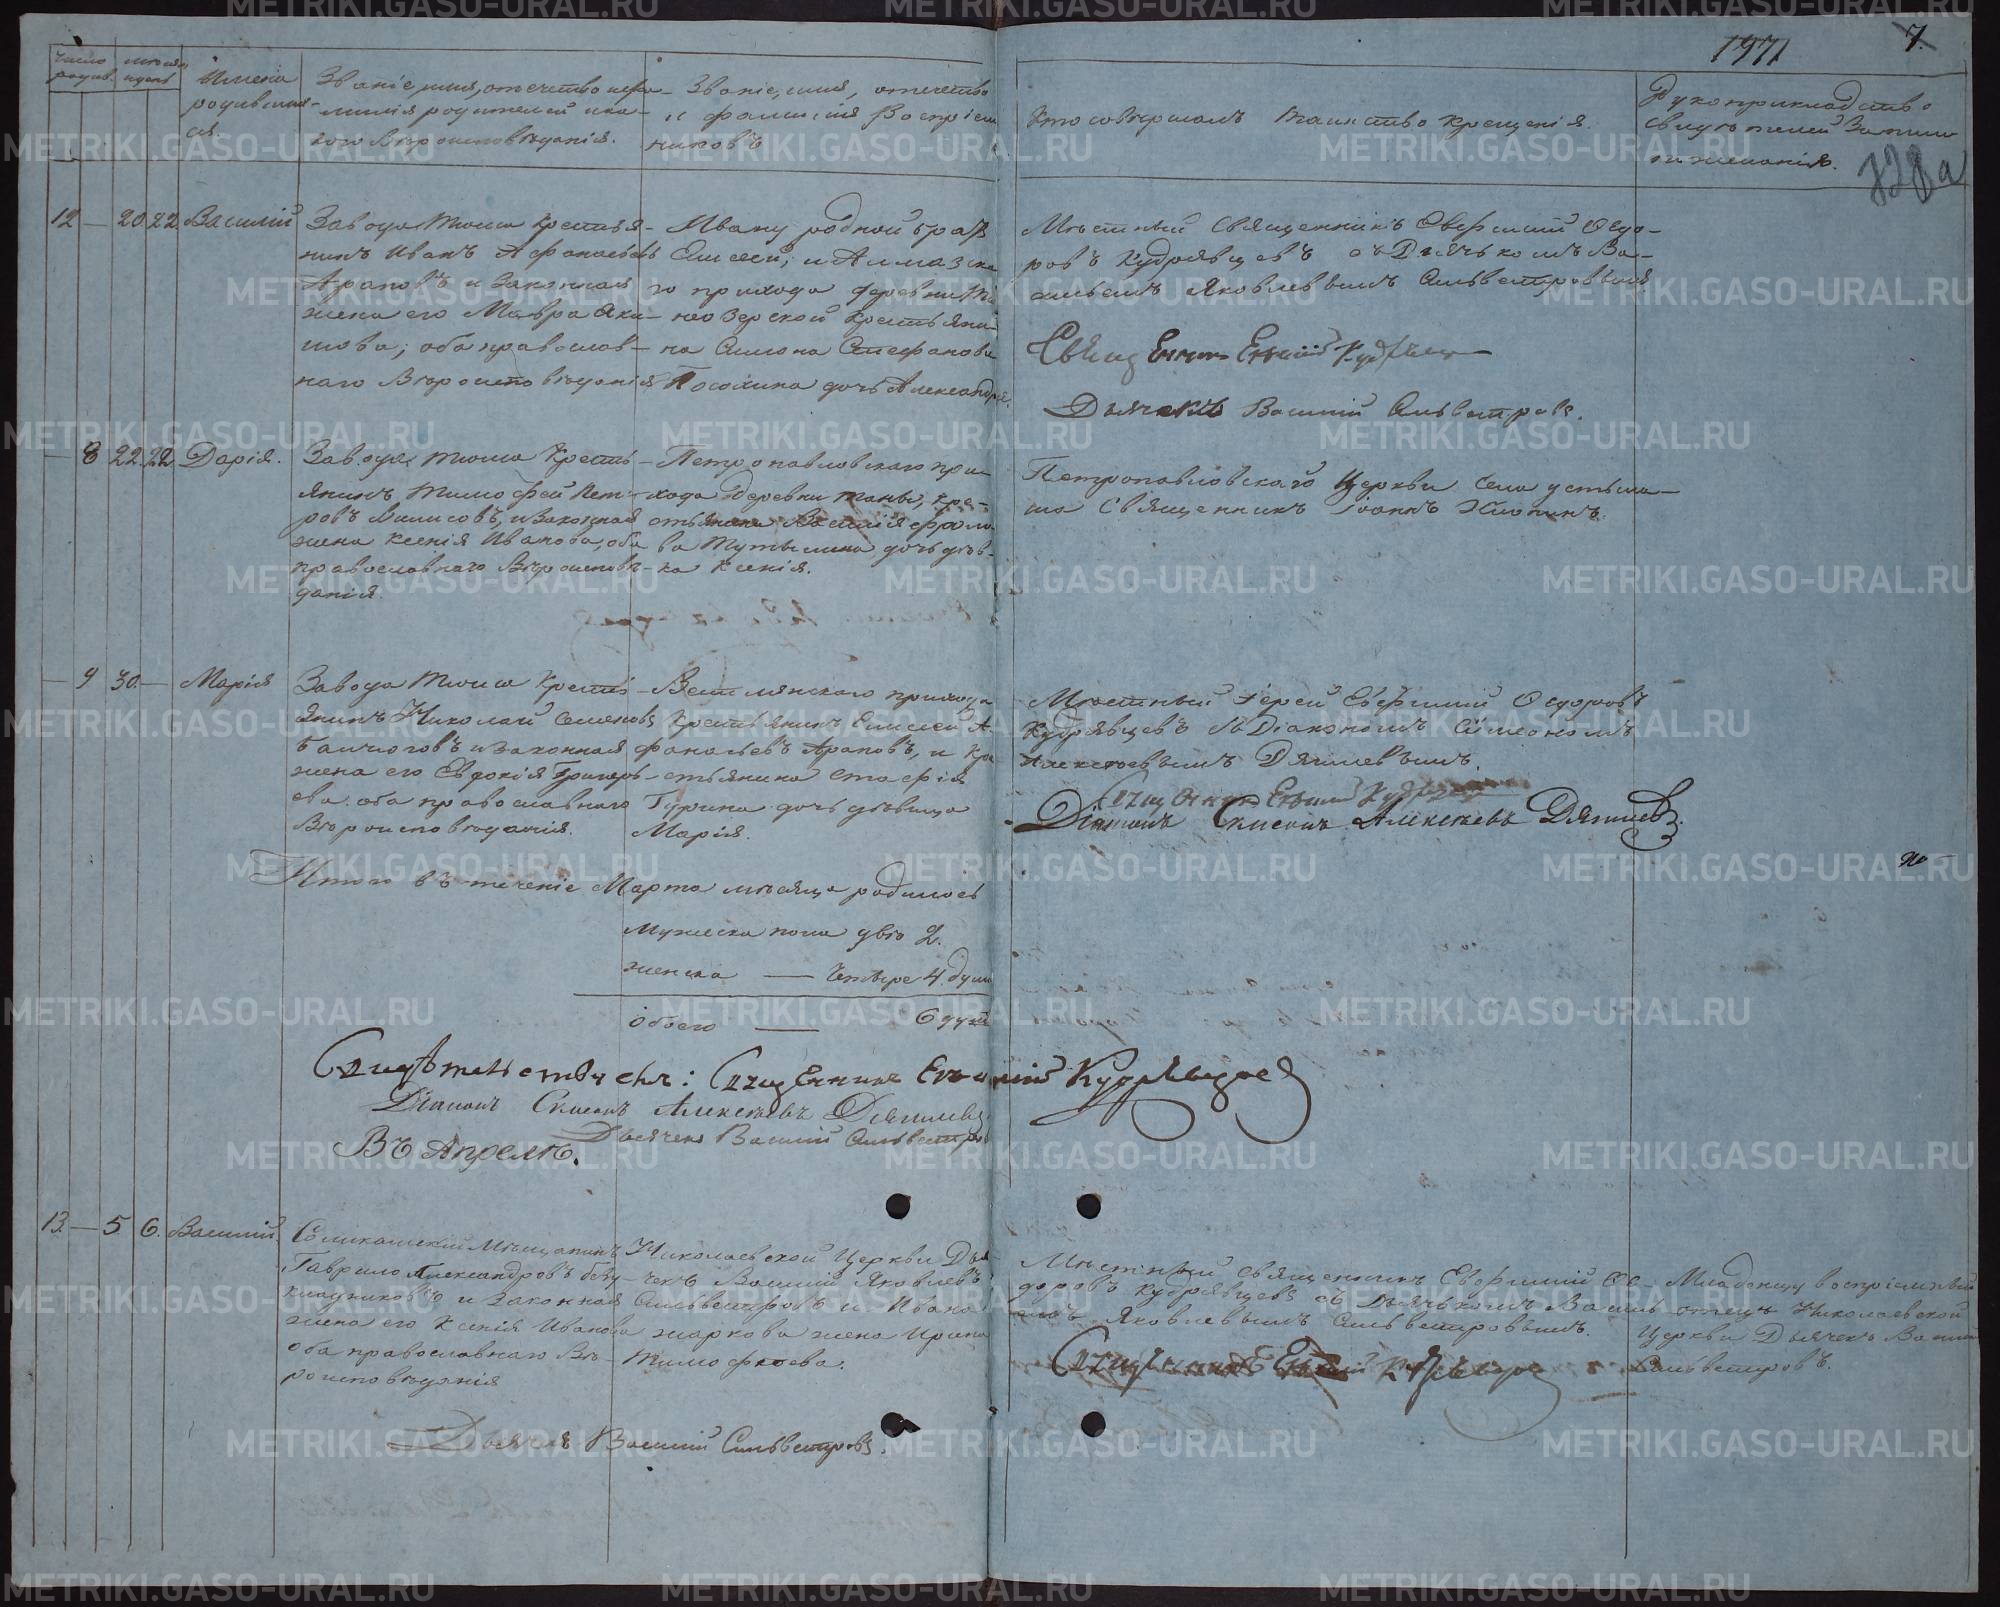 1971
7.
728а
Число родив.
месяцъ
Имена
родивших-
ся.
Званіе, имя, отечество и фа-
милія родителей и ка-
кого Вѣроисповѣданія.
Званіе, имя, отечество
и фамилія Воспріем-
никовъ
Кто совершалъ таинство крещенія.
Рукоприкладство
свидѣтелей записи
по желанію.
12 — 20. 22 Василій
Завода Тиоша крестья-
нинъ Иванъ Афанасьевъ
Араповъ и законная
жена его Мавра Яки-
мова; оба православ-
наго Вѣроисповѣданія
Ивану родной братъ
Елисей; и Алмазска
го прихода деревни
неозерской крестьяни-
на Симона Стефанова
Посохина дочь Александра.
Мѣстный Священникъ Евфимій Ѳедо-
ровъ Кудрявцевъ съ Дьячкомъ Ва-
сильемъ Яковлевымъ Сильвестровымъ
Священникъ Евфимій Кудрявцевъ
Дьячекъ Василій Сильвестровъ.
— 8 22. 22 Дарія.
Завода Тиоша Кресть-
янинъ Тимофей Пет-
ровъ и законная
жена Ксенія Иванова, оба
православнаго Вѣроисповѣ-
данія.
Петропавловскаго при-
хода деревни кре-
стьянина Василія Фроло-
ва дочь дѣв-
ка Ксенія.
Петропавловскаго Церкви села усть
Священникъ Іоаннъ
— 9 30 — Марія
Завода Тиоша Кресть-
янинъ Николай Семеновъ
и законная
жена его Евдокія Григорь-
ева. оба православнаго
Вѣроисповѣданія.
прихода
Крестьянинъ Елисей А-
фанасьевъ Араповъ, и кре
стьянина
Гурина дочь дѣвица
Марія.
Мѣстный Іерей Евфимій Ѳедоровъ
Кудрявцевъ съ Діакономъ Симеономъ
Алексѣевымъ Дягилевымъ.
Священникъ Евфимій Кудрявцевъ
Діаконъ Симеонъ Алексѣевъ Дягилевъ.
Итого въ теченіе Марта мѣсяца родилось
Мужеска пола двѣ 2.
женска — Четыре 4 душ
Обоего — 6 душъ
Свидѣтельствуемъ: Священникъ Евфимій Кудрявцевъ
Діаконъ Симеонъ Алексѣевъ Дягилевъ
Дьячекъ Василій Сильвестровъ
Въ Апрелѣ.
13. — 5 6. Василій.
Соликамскій Мѣщанинъ
Гаврило Александровъ
и законная
жена его Ксенія Иванова
оба православнаго Вѣ-
роисповѣданія
Николаевской Церкви Дья
чекъ Василій Яковлевъ
Сильвестровъ и Ивана
Жаркова жена Ирина
Тимофеева.
Мѣстный священникъ Евфимій Ѳе-
доровъ Кудрявцевъ съ Дьячкомъ Василь-
емъ Яковлевымъ Сильвестровымъ.
Священникъ Евфимій Кудрявцевъ
Младенцу воспріемный
отецъ Николаевской
Церкви Дьячекъ Василій
Сильвестровъ.
Дьячекъ Василій Сильвестровъ.
METRIKI.GASO-URAL.RU